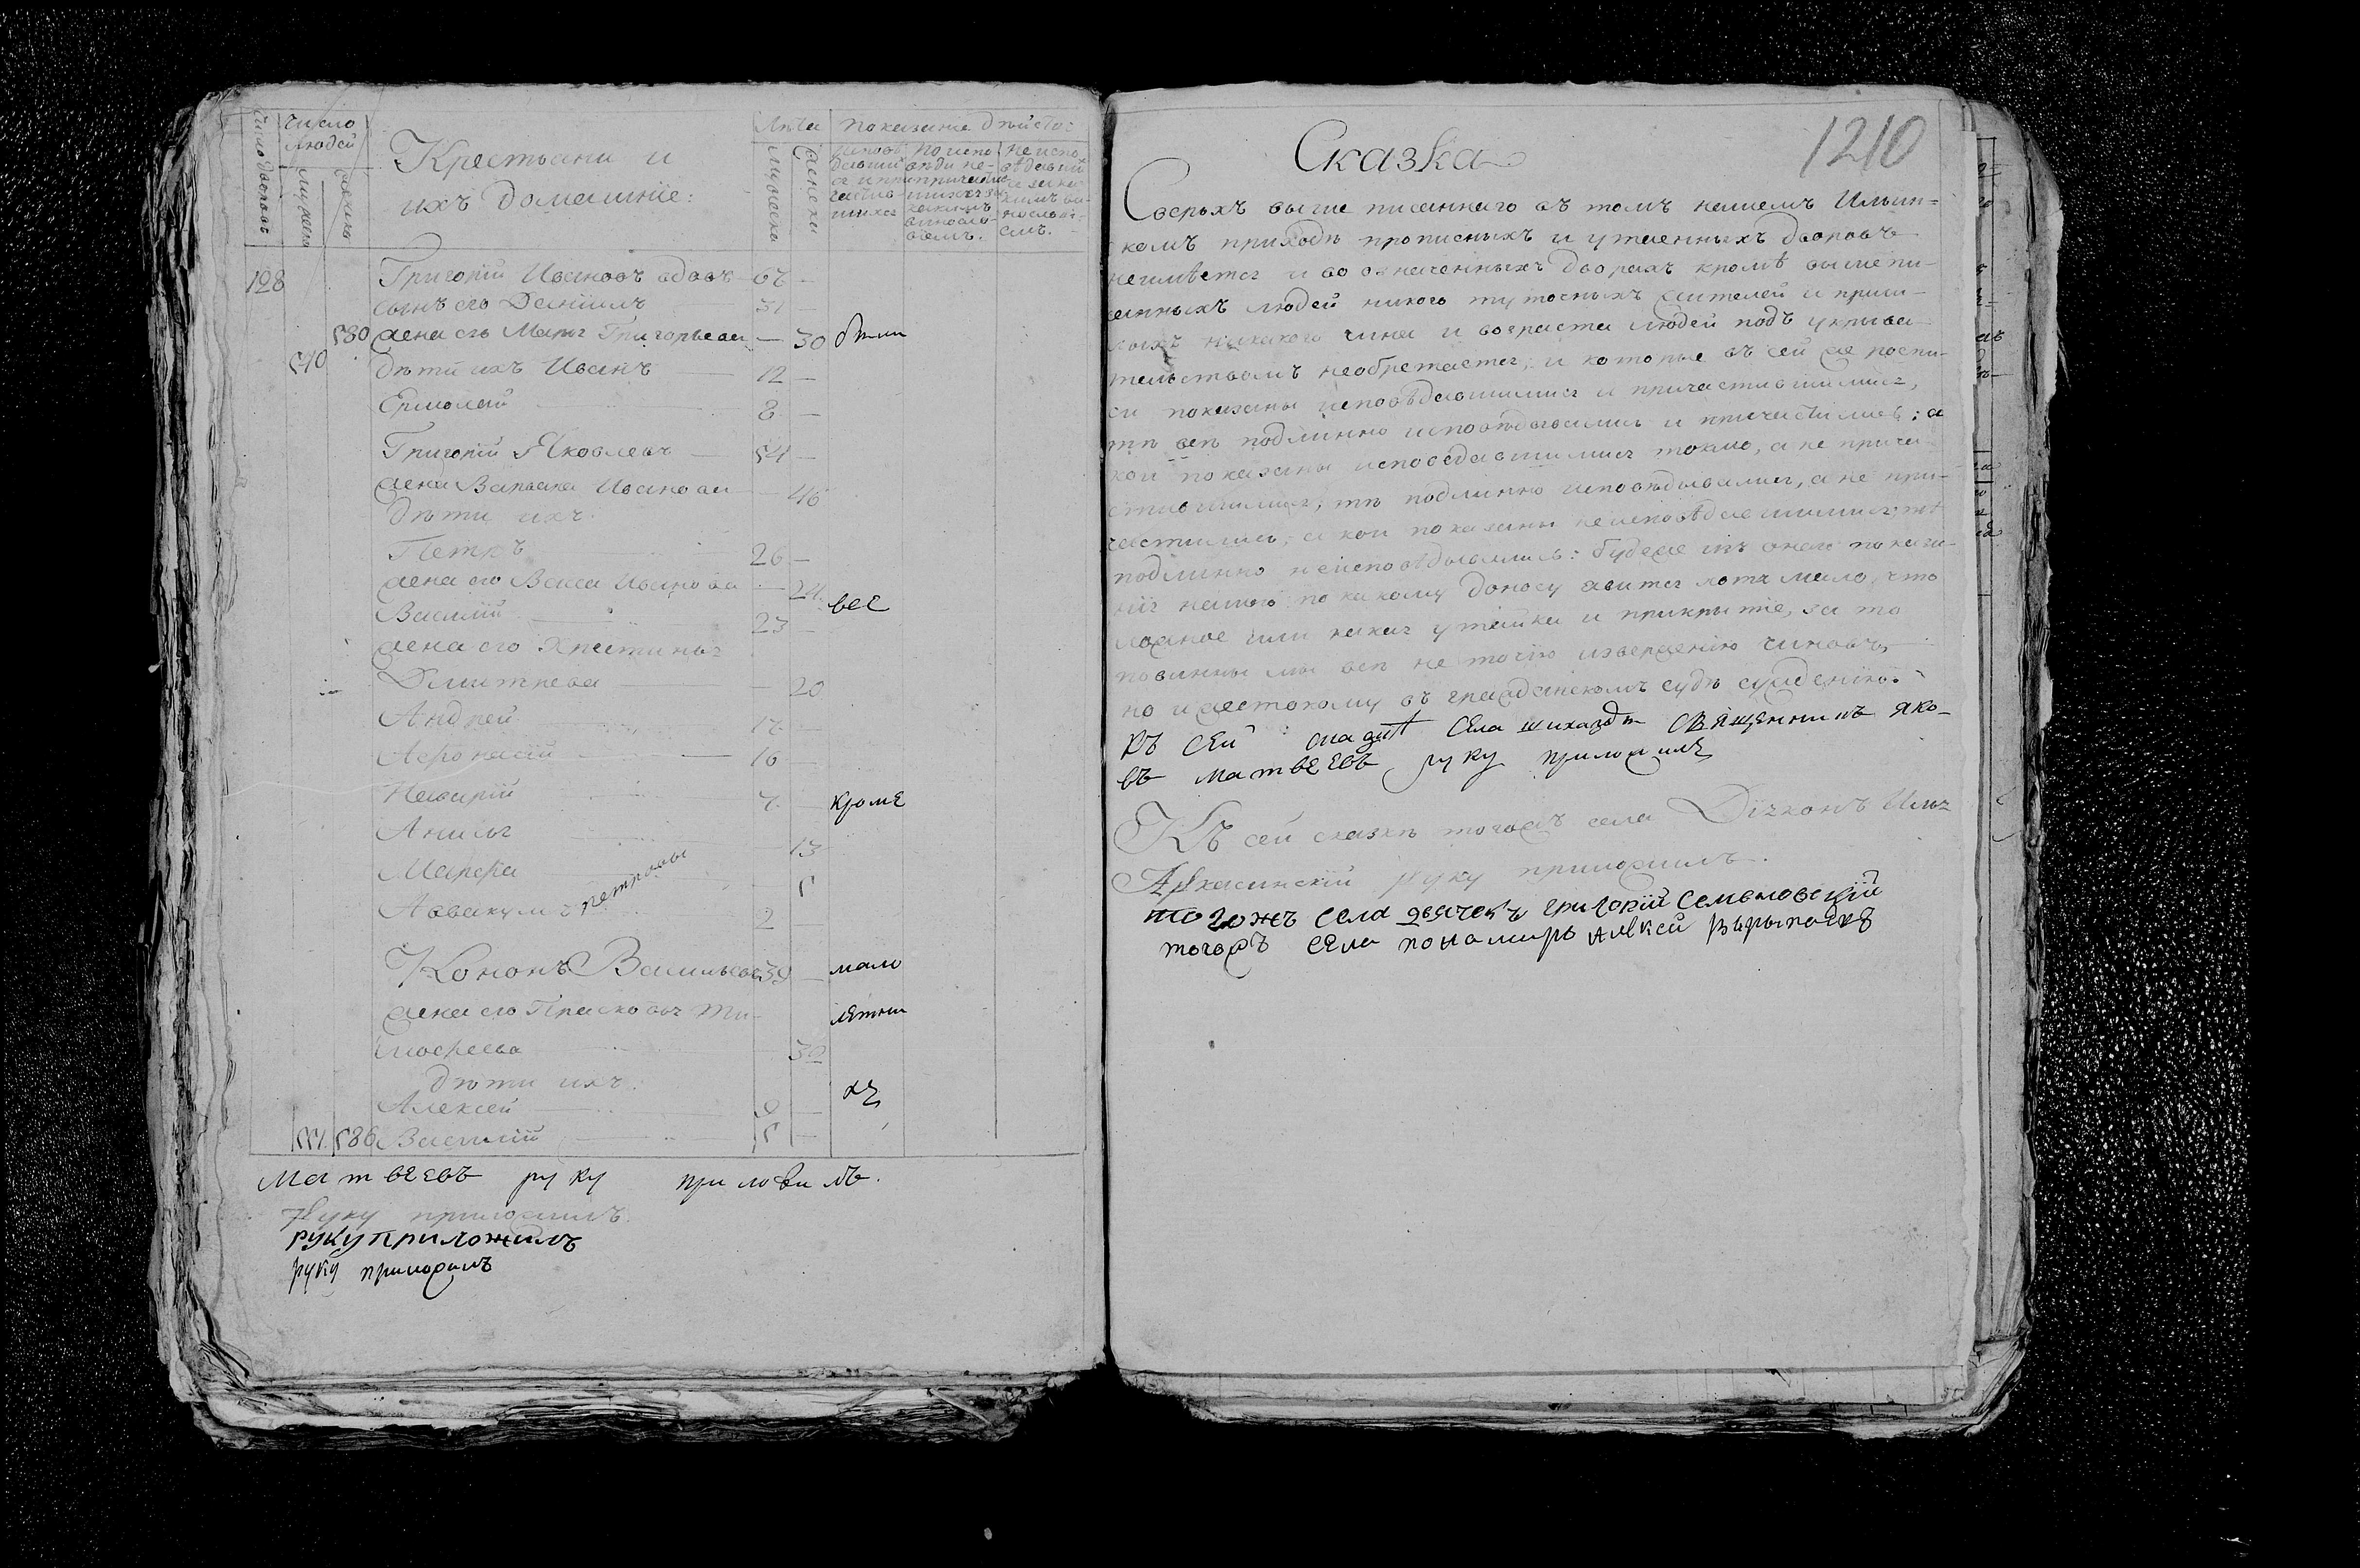 Число дворовъ
Число людей
мужеска
женска
Крестьяни и
ихъ домашніе:
Лѣта
мужески
женски
Показаніе дѣйства
108
Григорій Ивановъ вдовъ 67 —
сынъ его Даніилъ 31 —
580 жена его Марья Григорьева — 30 были
570 дѣти ихъ Иванъ 12 —
Ермолай 8 —
Григорій Яковлевъ 54 —
жена Варвара Иванова 46
дѣти ихъ
Петръ 26 —
жена его Васса Иванова — 24 все
Василій 23 —
жена его Христинья
Дмитрева — 20
Андрей 17 —
Афонасій 16 —
Назарій 7 — кроме
Анисья 13
Марфа 5
Аввакумъ петровы 2
Кононъ Васильевъ 39 — мало
жена его Прасковья Ти-
мофеева 30 лѣтни
дѣти ихъ: хъ
Алексей 9 —
577 586 Василій 5 —
Матвеевъ руку приложилъ.
Руку приложилъ.
руку приложилъ
руку приложилъ
1210
Сказка
Сверхъ выше писаннаго въ томъ нашемъ Ильин-
комъ приходѣ прописныхъ и утаенныхъ дворовъ
неимѣется и во означенныхъ дворахъ кромѣ вышепи-
санныхъ людей никого тутошныхъ жителей и приш-
лыхъ никакого чина и возраста людей подъ укрыва-
тельствомъ необретается, и которые въ сей же роспи-
си показаны исповѣдавшимися и причастившимися,
тѣ всѣ подлинно исповѣдывались и причастились; а
кои показаны исповедавшимися токмо, а не прича-
стившимися, тѣ подлинно исповѣдывались, а не при-
частились; а кои показаны неисповѣдавшимися, тѣ
подлинно неисповѣдывались: будеже изъ онаго показа-
нія нашего по какому доносу явится хотя мало, что
ложное или какая утайка и прикрытіе, за то
повинны мы всѣ не точію изверженію чиновъ,
но и жестокому въ гражданскомъ судѣ сужденію.
Къ сей сказкѣ села шихаздъ Священникъ Яко-
въ Матвеевъ руку приложилъ
Къ сей сказкѣ тогожъ села Діяконъ Илья
руку приложилъ.
тогожъ села дьячекъ григорій Семеловскій
тогожъ села пономарь Алексей